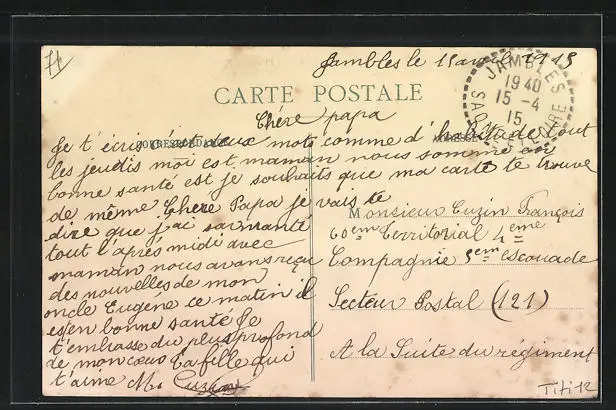 Jambles le 15 avril 1915
JAMBLES
1940
15-4
15
CARTE POSTALE
Chère papa
Je t'écris c'est deux mots comme d'habitude tout
CORRESPONDANCE
les jeudis moi est maman nous somme ao
bonne santé est je souhaits que ma carte te trouve
de même Chere Papa je vais te
dire que j'ai sarmanté
tout l'après midi avec
maman nous avons reçu
des nouvelles de mon
oncle Eugène ce matin il
est en bonne santé Je
t'embrasse du plus profond
de mon cœur Ta fille qui
t'aime M. Cuzin
Monsieur Cuzin François
60em Territorial 4eme
Compagnie 5em escouade
Secteur Postal (121)
A la Suite du régiment